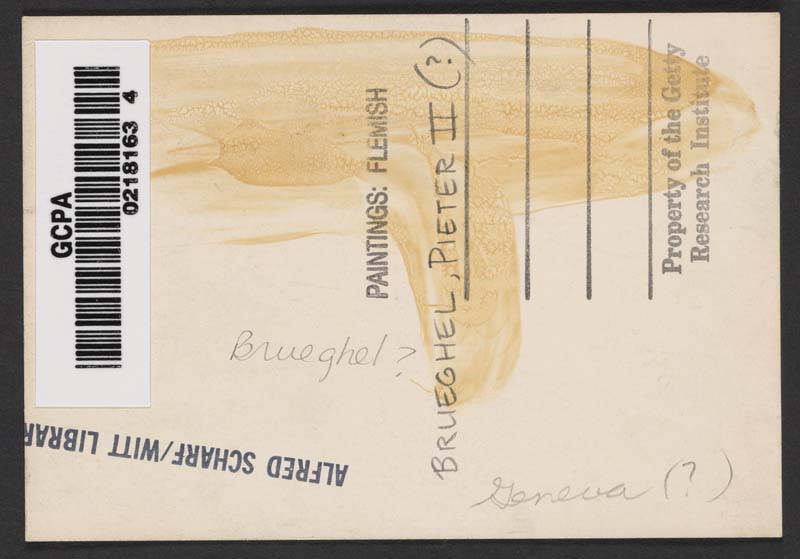 GCPA
0218163 4
PAINTINGS: FLEMISH
BRUEGHEL, PIETER II (?)
Property of the Getty
Research Institute
Brueghel?
ALFRED SCHARF/WITT LIBRAR
Geneva (?)